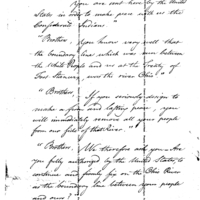 You are sent here by the United
States in order to make peace with us the
Confederate Indians
"Brother, You know very well that
the boundary line which was run between
the White People and us at the Treaty of
Fort Stanwix was the river Ohio
"Brother, If you seriously design to
make a firm and lasting peace, you
will immediately remove all your people
from our side of that River.
"Brother, We therefore ask you Are
you fully authorized by the United States to
continue and firmly fix on the Ohio River
as the boundary line between your people
and ours?